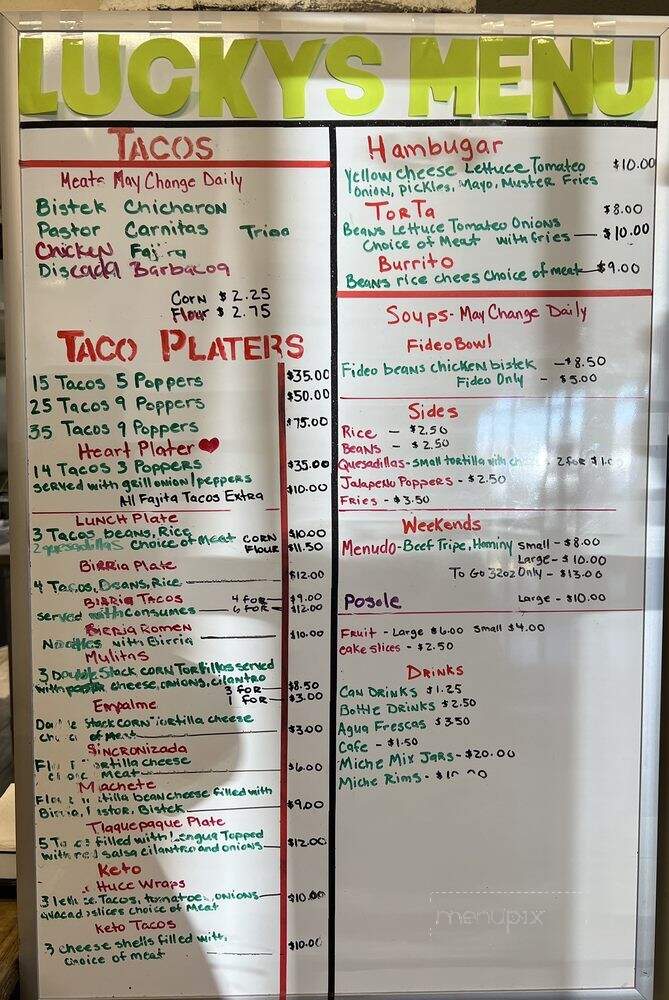 LUCKYS MENU
TACOS
Meats May Change Daily
Bistek Chicharon
Pastor Carnitas Tripa
Chicken Fajira
Discada Barbacoa
Corn $2.25
Flour $2.75
TACO PLATERS
15 Tacos 5 Poppers $35.00
25 Tacos 9 Poppers $50.00
35 Tacos 9 Poppers $75.00
Heart Plater
14 Tacos 3 Poppers $35.00
served with grill onion/peppers
All Fajita Tacos Extra $10.00
LUNCH Plate
3 Tacos beans, Rice $10.00
2 quesadillas choice of meat CORN
FLOUR $11.50
BIRRIA Plate
4 Tacos, Beans, Rice $12.00
BIRRIA TACOS 4 FOR $9.00
served with Consumes 6 FOR $12.00
BIRRIA ROMEN
Noodles with Birria $10.00
Mulitas
3 Double Stack CORN TORtillas served
with pastor cheese, onions, cilantro
3 FOR $8.50
1 FOR $3.00
Empalme
Double Stack CORN Tortilla cheese
choice of meat $3.00
SINCRONIZADA
Flour tortilla cheese
choice meat $6.00
Machete
Flour tortilla bean cheese filled with
Birria, Pastor, Bistek $9.00
Tlaquepaque Plate
5 Tacos filled with Lengua Topped
with red salsa cilantro and onions $12.00
Keto
Wraps
3 lettuce Tacos, tomatoe, onions $10.00
avacado slices choice of Meat
Keto Tacos
3 cheese shells filled with
choice of meat $10.00
Hambugar
Yellow cheese Lettuce Tomateo $10.00
onion, pickles, Mayo, Muster Fries
TORTA $8.00
Beans Lettuce Tomateo Onions
Choice of Meat with fries - $10.00
Burrito
Beans rice chees choice of meat - $9.00
Soups - May Change Daily
Fideo Bowl
Fideo beans chicken bistek - $8.50
Fideo Only - $5.00
Sides
Rice - $2.50
Beans - $2.50
Quesadillas - small tortilla with 2 for
Jalapeño Poppers - $2.50
Fries - $3.50
Weekends
Menudo - Beef Tripe, Hominy small - $8.00
Large - $10.00
To Go 32oz Only - $13.00
Posole Large - $10.00
Fruit - Large $6.00 Small $4.00
cake slices - $2.50
DRINKS
CAN DRINKS $1.25
Bottle DRINKS $2.50
Agua Frescas $3.50
Cafe - $1.50
Miche Mix Jars - $20.00
Miche Rims -
menupix